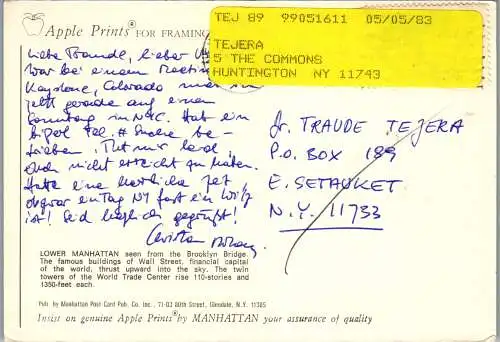 Apple Prints® FOR FRAMING
TEJ 89 99051611 05/05/83
TEJERA
5 THE COMMONS
HUNTINGTON NY 11743
Liebe Traude, lieber
War bei einem Meeting
Keystone, Colorado
jetzt gerade auf einem
Sonntag in NYC. Hab ein
Tel. # Suche be-
trieben. Tut mir leid,
Euch nicht erreicht zu haben.
Hatte eine herrliche Zeit,
obzwar ein Tag NY fast ein Witz
ist! Seid herzlich gegrüßt!
Christian
Dr. TRAUDE TEJERA
P.O. BOX 189
E. SETAUKET
N.Y. 11733
LOWER MANHATTAN seen from the Brooklyn Bridge.
The famous buildings of Wall Street, financial capital
of the world, thrust upward into the sky. The twin
towers of the World Trade Center rise 110-stories and
1350-feet each.
Pub. by Manhattan Post Card Pub. Co. Inc., 71-03 80th Street, Glendale, N.Y. 11385
Insist on genuine Apple Prints® by MANHATTAN your assurance of quality